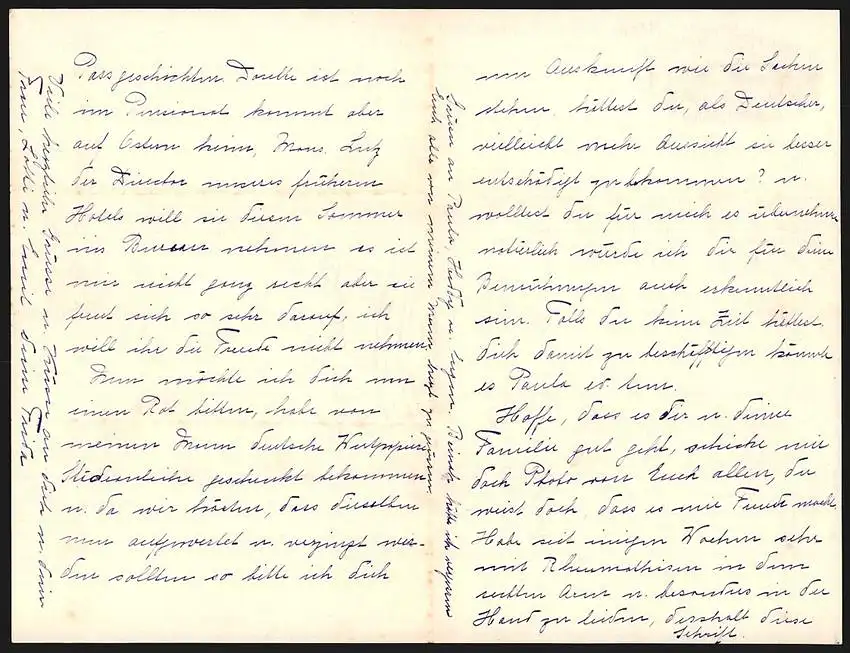 Passgeschichten Dorette ist noch
im Pensionat kommt aber
auf Ostern heim, Mons. Lutz
der Director unseres früheren
Hotels will sie diesen Sommer
ins Bureau nehmen es ist
mir nicht ganz recht aber sie
freut sich so sehr darauf, ich
will ihr die Freude nicht nehmen.
Nun möchte ich dich um
einen Rat bitten, habe von
meinem Mann deutsche Wertpapiere
Städteanleihe geschenkt bekommen
u. da wir hörten, dass dieselben
nun aufgewertet u. verzinst wer-
den sollten so bitte ich dich
um Auskunft wie die Sachen
stehen. hättest du, als Deutscher,
vielleicht mehr Aussicht sie besser
entschädigt zu bekommen? u.
wolltest du für mich es übernehmen
natürlich würde ich dir für deine
Bemühungen auch erkenntlich
sein. Falls du keine Zeit hättest
dich damit zu beschäftigen könnte
es Paula tun.
Hoffe, dass es dir u. deiner
Familie gut geht, schicke mir
doch Photo von Euch allen, du
weist doch, dass es mir Freude macht.
Habe seit einigen Wochen sehr
mit Rheumathisen in dem
rechten Arm u. besonders in der
Hand zu leiden, desshalb diese
Schrift.
Grüsse an Paula, Hedwig u. Eugen, hätte ich vergessen
Euch alle von meinem Mann zu grüssen.
Viele herzliche Grüsse u. Küsse an dich u. deine
Frau, Lotti u. Emil deine Frida